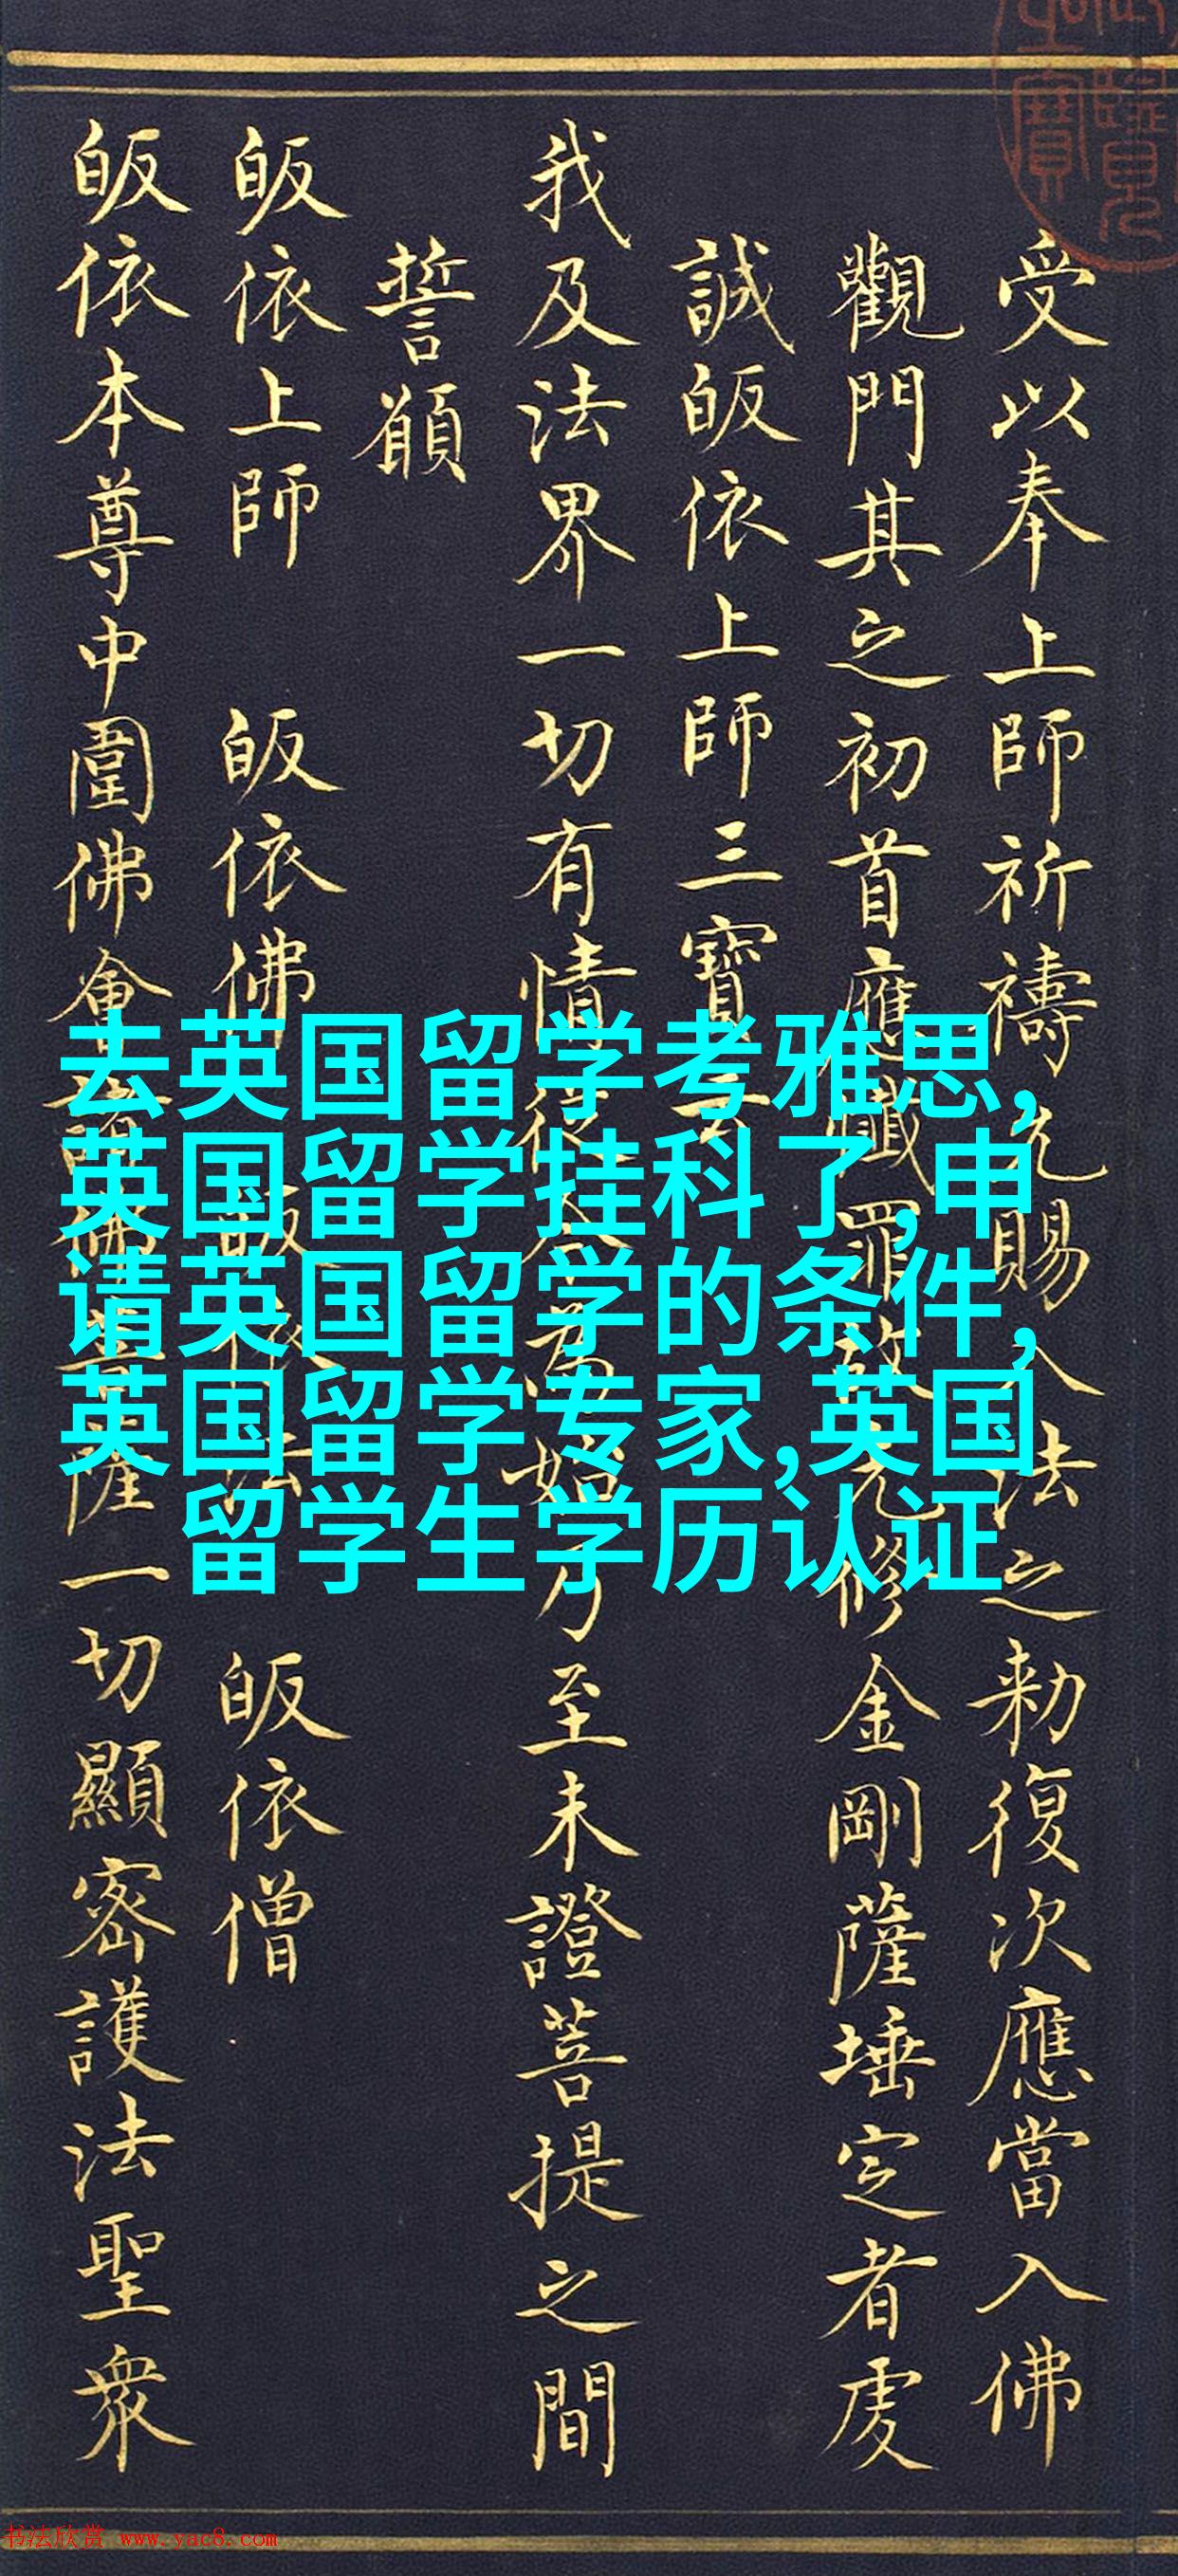 去英国留学考雅思,
英国留学挂科了,申
请英国留学的条件,
英国留学专家,英国
留学生学历认证
受以奉上師祈禱允賜入法之勅復次應當入佛
觀門其之初首應懺罪故先修金剛薩埵定者虔
誠皈依上師三寶云
我及法界一切有情從今為始乃至未證菩提之間
誓願
皈依上師 皈依佛 皈依法 皈依僧
皈依本尊中圍佛會諸佛菩薩一切顯密護法聖衆
书法欣赏 www.yac8.com